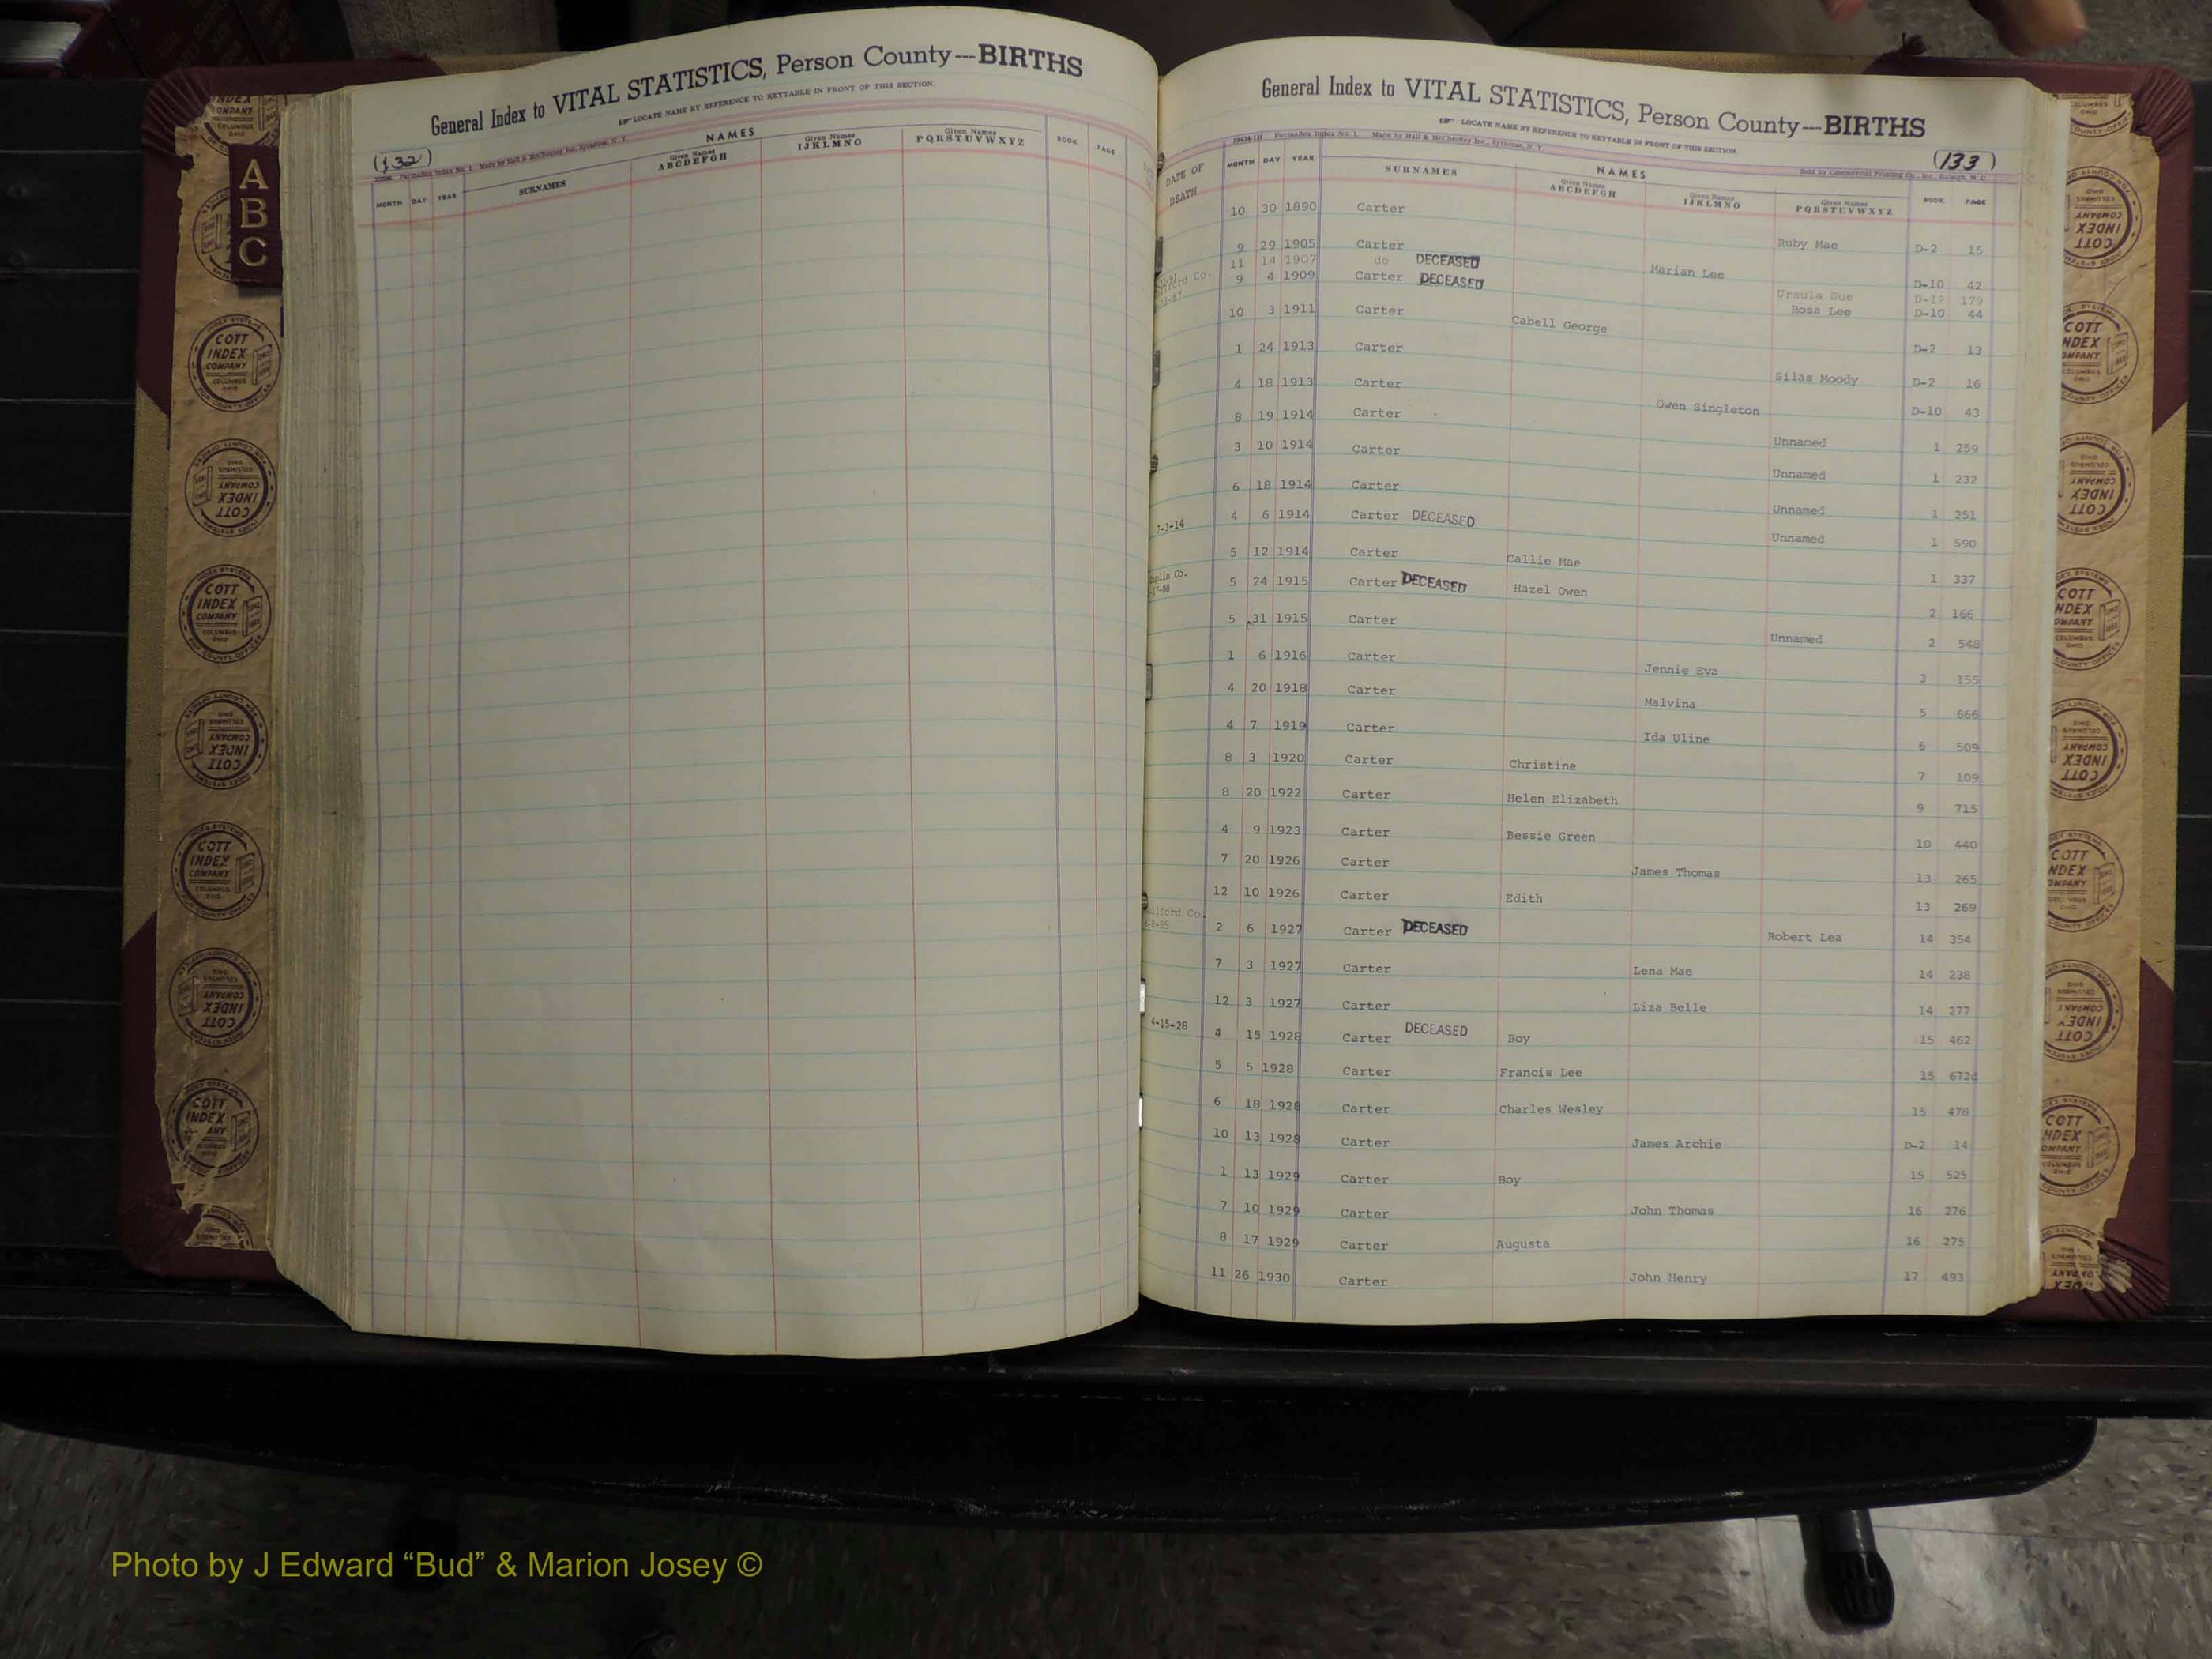 General Index to VITAL STATISTICS, Person County---BIRTHS
LOCATE NAME BY REFERENCE TO KEYTABLE IN FRONT OF THIS SECTION.
(132)
Permaflex Index No. 1. Made by Hall & McChesney Inc., Syracuse, N. Y.
NAMES
MONTH DAY YEAR SURNAMES Given Names ABCDEFGH Given Names IJKLMNO Given Names PQRSTUVWXYZ BOOK PAGE
A
B
C
General Index to VITAL STATISTICS, Person County---BIRTHS
LOCATE NAME BY REFERENCE TO KEYTABLE IN FRONT OF THIS SECTION.
(133)
Permaflex Index No. 1. Made by Hall & McChesney Inc., Syracuse, N. Y.
Sold by Commercial Printing Co., Inc., Raleigh, N. C.
NAMES
DATE OF DEATH MONTH DAY YEAR SURNAMES Given Names ABCDEFGH Given Names IJKLMNO Given Names PQRSTUVWXYZ BOOK PAGE
10 30 1890 Carter Ruby Mae D-2 15
9 29 1905 Carter Marian Lee D-10 42
11 14 1907 do DECEASED Ursula Sue D-12 179
9 4 1909 Carter DECEASED Rosa Lee D-10 44
10 3 1911 Carter Cabell George D-2 13
1 24 1913 Carter Silas Moody D-2 16
4 18 1913 Carter Owen Singleton D-10 43
8 19 1914 Carter Unnamed 1 259
3 10 1914 Carter Unnamed 1 232
6 18 1914 Carter Unnamed 1 251
7-3-14 4 6 1914 Carter DECEASED Unnamed 1 590
5 12 1914 Carter Callie Mae 1 337
5 24 1915 Carter DECEASED Hazel Owen 2 166
5 31 1915 Carter Unnamed 2 548
1 6 1916 Carter Jennie Eva 3 155
4 20 1918 Carter Malvina 5 666
4 7 1919 Carter Ida Uline 6 509
8 3 1920 Carter Christine 7 109
8 20 1922 Carter Helen Elizabeth 9 715
4 9 1923 Carter Bessie Green 10 440
7 20 1926 Carter James Thomas 13 265
12 10 1926 Carter Edith 13 269
2 6 1927 Carter DECEASED Robert Lea 14 354
7 3 1927 Carter Lena Mae 14 238
12 3 1927 Carter Liza Belle 14 277
4-15-28 4 15 1928 Carter DECEASED Boy 15 462
5 5 1928 Carter Francis Lee 15 672d
6 18 1928 Carter Charles Wesley 15 478
10 13 1928 Carter James Archie D-2 14
1 13 1929 Carter Boy 15 525
7 10 1929 Carter John Thomas 16 276
8 17 1929 Carter Augusta 16 275
11 26 1930 Carter John Henry 17 493
COTT INDEX COMPANY COLUMBUS OHIO
Photo by J Edward “Bud” & Marion Josey ©